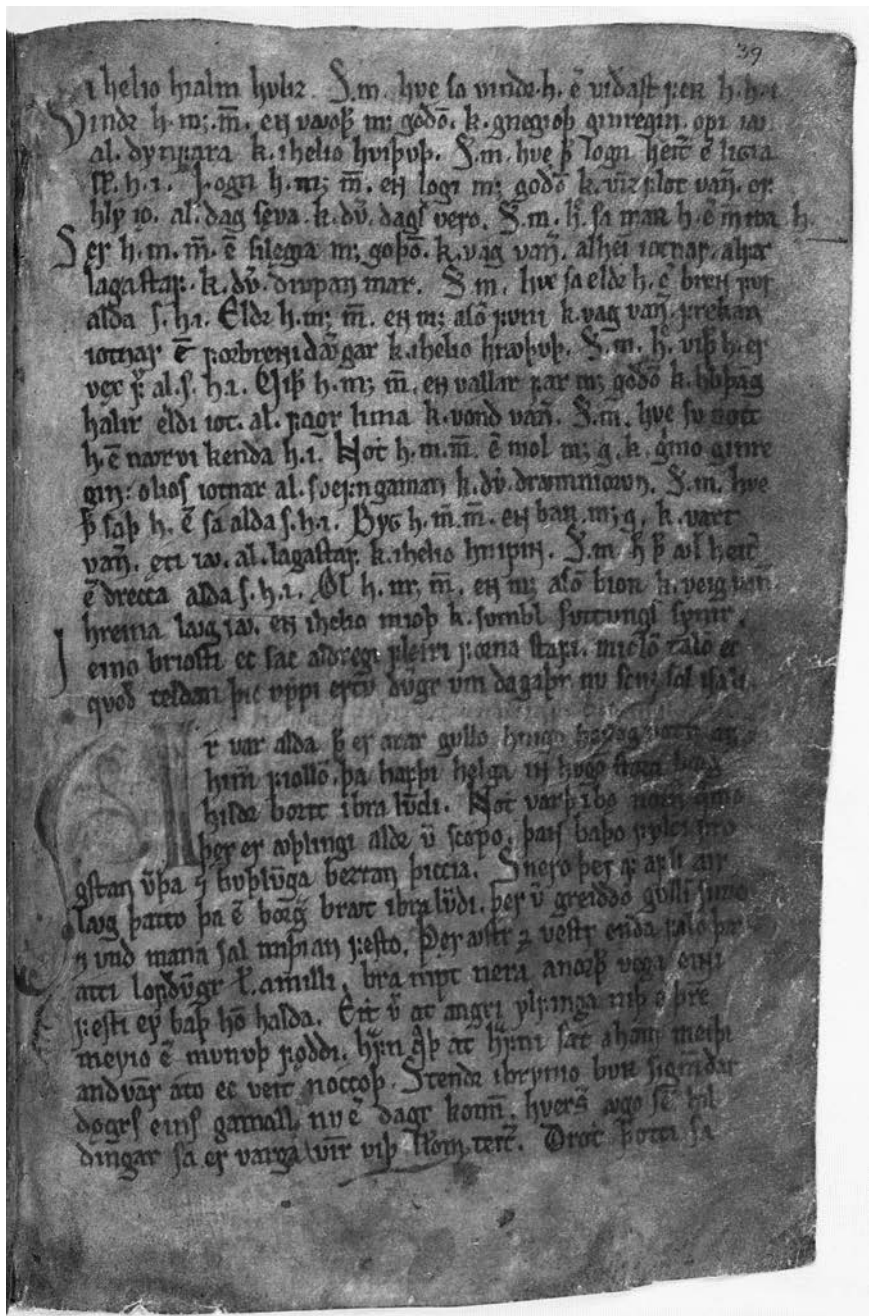 39
i helio hialm huliz. S.m. hve sa vindr. h. ē vidast ꝼeʀ h.h.i
Vindr h.m;.m̄. en vavoþ m; godō. k. gnegioþ ginregin. opi iǫ
al. dynꝼara k. ihelio hviþvþ. S.m. hve þ̄ logn heit̄ ē ligia
sl̄. h.i. Logn h.m; m̄. en logi m; godō k. vīzꝼlot van̄. oꝼ
hly io. al. dag seva. k. dv̄. dags vero. S.m. h̄. sa maʀ h. ē m̄ roa h.
Ser h.m.m̄. ē silegia m; goþō. k. vag van̄. alhei iotnar. alꝼar
lagastaꝼ. k. dv̄. diupan mar. S m. hve sa eldr h. ē breɴ ꝼyr
alda s. h.i. Eldr h.m; m̄. en m; asō ꝼuni k. vag van̄. ꝼrekan
iotnar ē ꝼorbrenni dꜹgar k. ihelio hrꜹþvþ. S.m. h̄. viþ h. er
vex ꝼ̄ al. s. h.i. Viþ h.m; m̄. en vallar ꝼax m; godō k. hliþþāg
halir eldi iot. al. ꝼagr lima k. vond van̄. S.m. hve su nott
h. ē nꜹrvi kenda h.i. Not h.m.m̄. ē niol m; g. k. gmo ginre
gin: olios iotnar al. sveꝼngaman k. dv̄. drꜹmniorvn. S.m. hve
þ̄ saþ h. ē sa alda s. h.i. Bygg h.m̄.m̄. en barr m; g. k. vaxt
van̄. eti iꜹ. al. lagastaꝼ. k. ihelio hnipin. S.m h̄ þ̄ ꜹl heit̄
ē drecca alda s. h.i. Ol h.m; m̄. en m; asō bior k. veig van̄.
hreina lꜹg iꜹ. en ihelio mioþ k. sumbl suttungs synir.
I eino briosti ec sac aldregi ꝼleiri ꝼorna staꝼi. miclō talō ec
quoð teldan þic vppi ertv dv̄gr vm dagaþr nu scīn; sol isali.
Ar var alda þ̄ er arar gullo hnigo heilag votn aꝼ
himꝼiollō. þa haꝼþi helga in hvgo stora borg
hildr borit ibra lv̄di. Not varþ ibo nornir qmo
þer er ꜹþlingi aldr v̄ scopo. þaɴ baþo ꝼylci ꝼrę
gstan v̄þa ⁊ bvþlv̄ga beztan þiccia. Snero þer aꝼ aꝼli aur
lꜹg þatto þa ē borg̃ brꜹt ibra lv̄di. þer v̄ greiddo gullī simo
⁊ vnd mana sal miþian ꝼesto. Þer ꜹstr ⁊ vestr enda ꝼalō þar
atti loꝼdv̄gr l̄. amilli. bra nipt nera anorþ vega eiɴi
ꝼesti ey baþ hō halda. Eit v̄ at angri ylꝼinga niþ ⁊ þr̄e
meyio ē mvnvþ ꝼøddi. hraꝼn q̄þ at hraꝼni sat aham meiþi
andvar̄ ato ec veit noccoþ. Stendr ibrynio bvʀ sigm̄dar
dǫgrs eins gamall nv ē dagr komin̄. hversir ꜹgo sē hil
dingar sa er varga vin̄r viþ sl̄om teit̄. Drot þotti sa